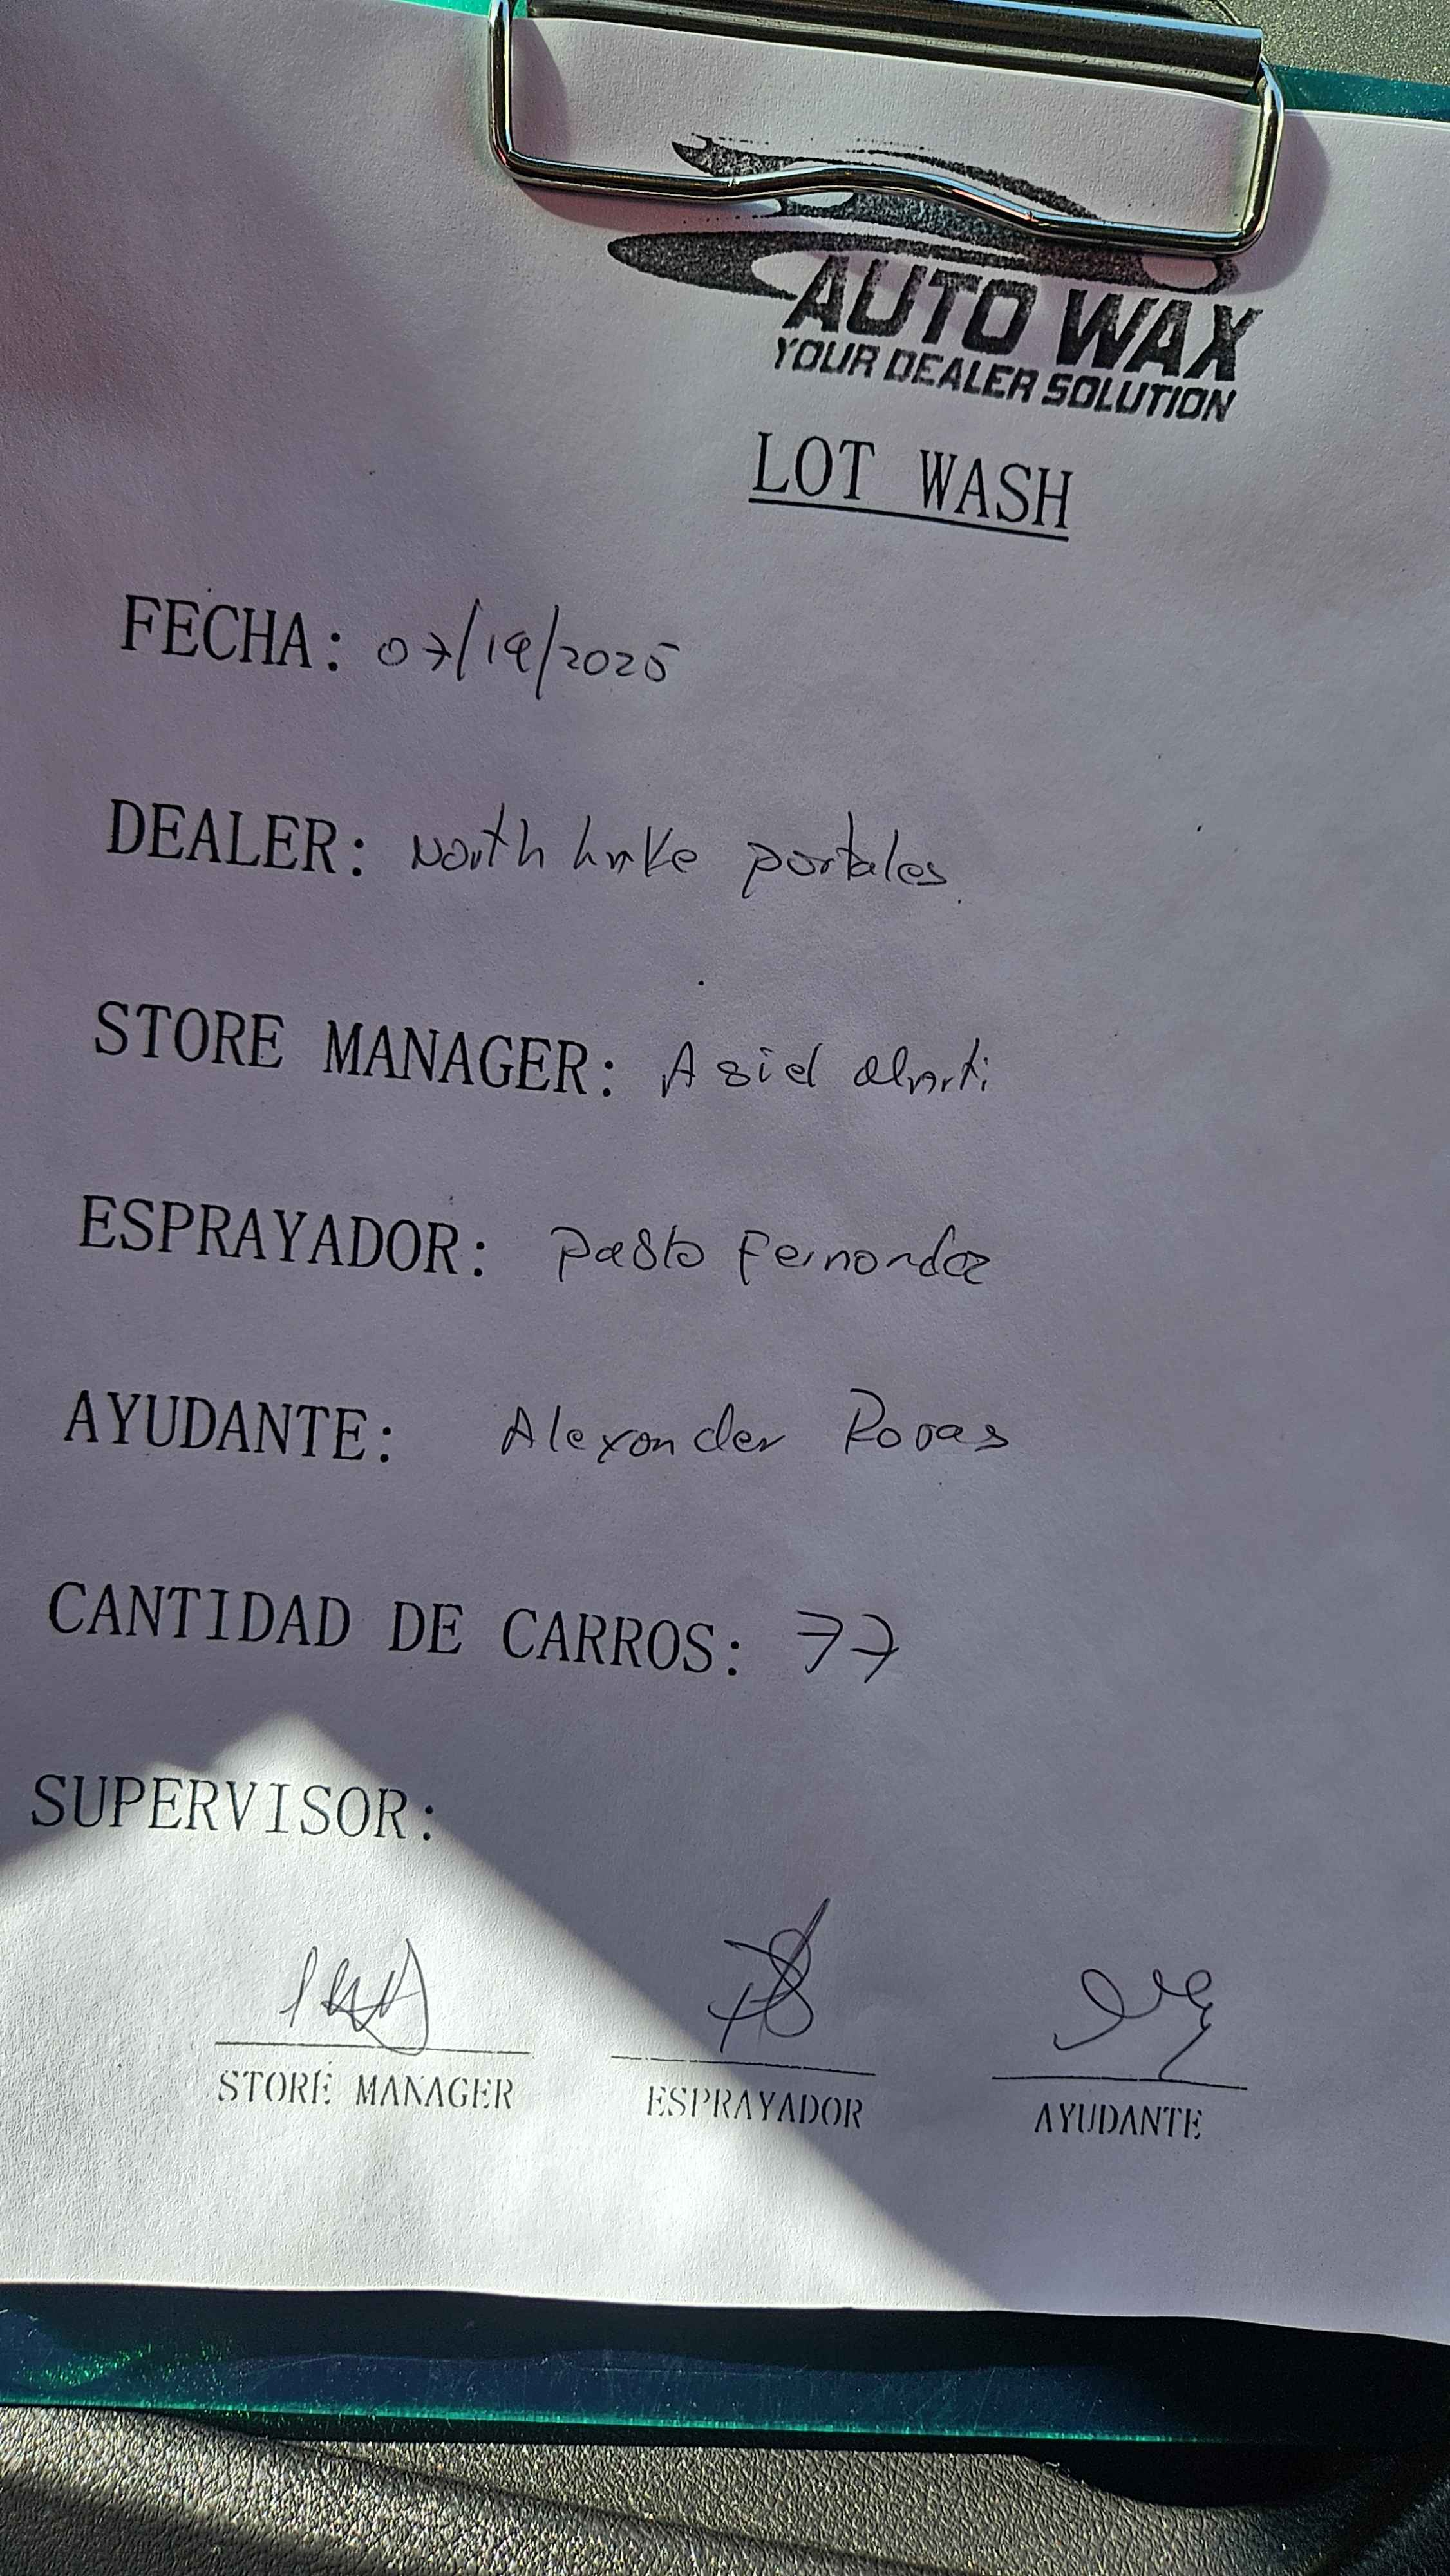 AUTO WAX
YOUR DEALER SOLUTION
LOT WASH
FECHA: 07/19/2025
DEALER: North Lake portales
STORE MANAGER: Asiel
ESPRAYADOR: Pablo Fernandez
AYUDANTE: Alexander Rojas
CANTIDAD DE CARROS: 77
SUPERVISOR:
STORE MANAGER ESPRAYADOR AYUDANTE